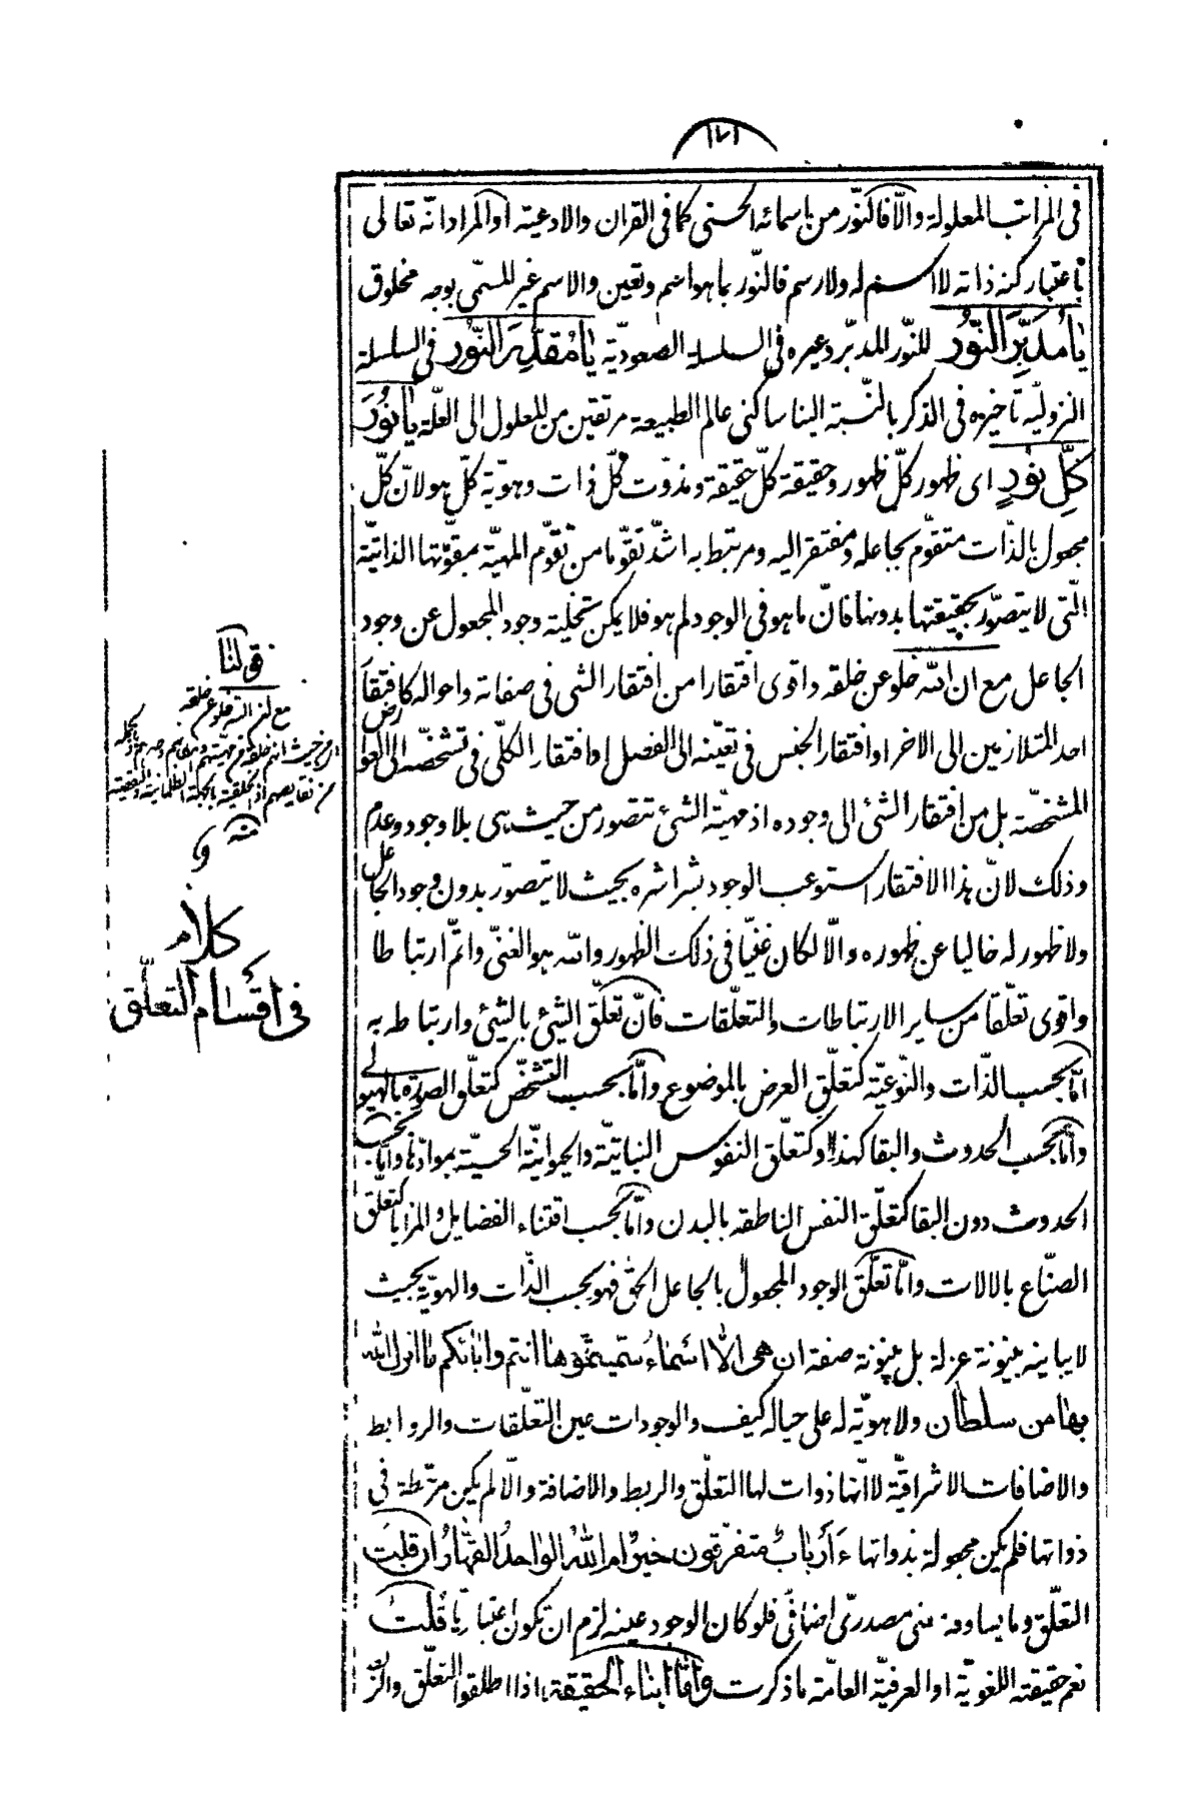 ١٧١
في المراتب المعلولة والّا فالنّور من اسمائه الحسنى كما في القران والادعيته او المراد انّه تعالى
باعتبار كنه ذاته لا اسم له ولا رسم فالنّور بما هو اسم وتعين والاسم غير للمسمّى بوجه مخلوق
يا مُدَبِّرَ النُّور للنّور المدبّر وغيره في السلسلة الصعوديّة يا مُقَدِّرَ النُّور في السلسلة
النزوليّه تاخيره في الذكر بالنّسبة الينا ساكنى عالم الطبيعة مرتقين من المعلول الى العلّة يا نُورَ
كُلِّ نُورٍ اى ظهور كلّ ظهور وحقيقة كلّ حقيقة ومذوّت كلّ ذات وهويّة كلّ هو لانّ كلّ
مجعول بالذّات متقوّم بجاعله ومفتقر اليه ومرتبط به اشدّ تقوّما من تقوّم المهيّة بمقوّمتها الذاتيّة
الّتى لا يتصوّر بحقيقتها بدونها فانّ ما هو في الوجود لم هو فلا يمكن تخلية وجود المجعول عن وجود
الجاعل مع ان الله خلو عن خلقه واقوى افتقارا من افتقار الشى في صفاته واحواله كافتقار
احد المتلازمين الى الاخر او افتقار الجنس في تعيّنه الى الفصل او افتقار الكلّى في تشخصّه الى العوارض
المشخصّة بل من افتقار الشئ الى وجوده اذ مهيّة الشئ تتصور من حيث هى بلا وجود وعدم
وذلك لانّ هذا الافتقار استوعب الوجود بشراشره بحيث لا يتصوّر بدون وجود الجاعل
ولا ظهور له خاليا عن ظهوره والّا لكان غنيّا في ذلك الظهور والله هو الغنىّ واتمّ ارتباطا
واقوى تعلّقا من ساير الارتباطات والتعلّقات فانّ تعلّق الشئ بالشئ وارتباطه به
امّا بحسب الذّات والنّوعيّة كتعلّق العرض بالموضوع وامّا بحسب التشخصّ كتعلّق الصورة بالهيولى
وامّا بحسب الحدوث والبقا كهذا او كتعلّق النفوس النباتيّة والحيوانيّة الحسيّة بموادّها وامّا بحسب
الحدوث دون البقا كتعلّق النفس الناطقه بالبدن وامّا بحسب اقتناء الفضايل والمزايا كتعلّق
الصنّاع بالالات وامّا تعلّق الوجود المجعول بالجاعل الحقّ فهو بحسب الذّات والهويّة بحيث
لا يباينه بينونة عزلة بل بينونة صفة ان هى الّا اسماء سمّيتموها انتم واباؤكم ما انزل الله
بها من سلطان ولا هويّة له على حياله كيف والوجودات عين التعلّقات والروابط
والاضافات الاشراقيّة لا انّها ذوات لها التعلّق والربط والاضافة والّا لم يكن مرتبطة في
ذواتها فلم يكن مجعولة بذواتها ءاَرْبابٌ متفرّقون خيرٌ ام اللهُ الواحدُ القهّارُ ان قلت
التعلّق وما يساوقه شئ مصدرىّ اضافىّ فلو كان الوجود عينه لزم ان تكون اعتباريّا قلت
نعم حقيقته اللغويّة او العرفيّة العامّة ما ذكرت وامّا ابناء الحقيقة اذا اطلقوا التعلّق والربط
قولنا
مع ان الله خلو عن خلقه
منه
كلام
في اقسام التعلّق